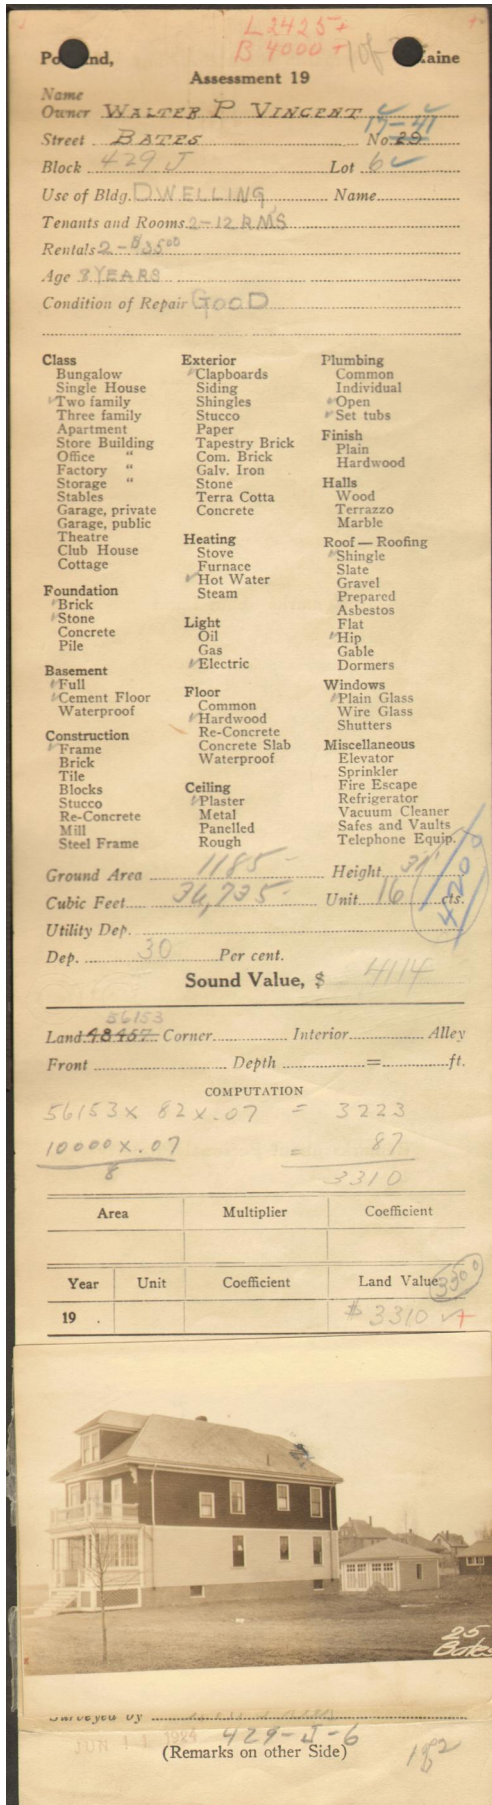 L 2425 +
B 4000 +
Portland, Maine
Assessment 19
Name
Owner WALTER P VINCENT
17-41
Street BATES No. 29
Block 429 J Lot 6
Use of Bldg. DWELLING Name
Tenants and Rooms 2-12 RMS
Rentals 2-$35.00
Age 8 YEARS
Condition of Repair GOOD
Class
Bungalow
Single House
Two family
Three family
Apartment
Store Building
Office "
Factory "
Storage "
Stables
Garage, private
Garage, public
Theatre
Club House
Cottage
Foundation
Brick
Stone
Concrete
Pile
Basement
Full
Cement Floor
Waterproof
Construction
Frame
Brick
Tile
Blocks
Stucco
Re-Concrete
Mill
Steel Frame
Exterior
Clapboards
Siding
Shingles
Stucco
Paper
Tapestry Brick
Com. Brick
Galv. Iron
Stone
Terra Cotta
Concrete
Heating
Stove
Furnace
Hot Water
Steam
Light
Oil
Gas
Electric
Floor
Common
Hardwood
Re-Concrete
Concrete Slab
Waterproof
Ceiling
Plaster
Metal
Panelled
Rough
Plumbing
Common
Individual
Open
Set tubs
Finish
Plain
Hardwood
Halls
Wood
Terrazzo
Marble
Roof — Roofing
Shingle
Slate
Gravel
Prepared
Asbestos
Flat
Hip
Gable
Dormers
Windows
Plain Glass
Wire Glass
Shutters
Miscellaneous
Elevator
Sprinkler
Fire Escape
Refrigerator
Vacuum Cleaner
Safes and Vaults
Telephone Equip.
Ground Area 1185 Height 31
Cubic Feet 36,735 Unit 16 cts.
4200
Utility Dep.
Dep. 30 Per cent.
Sound Value, $ 4114
56153
Land 48457 Corner Interior Alley
Front Depth = ft.
COMPUTATION
56153 x 82 x .07 = 3223
10000 x .07 = 87
8
3310
Area Multiplier Coefficient
Year Unit Coefficient Land Value
3300
19 . $ 3310
25
Bates
Surveyed by
JUN 11 1924
429-J-6
(Remarks on other Side)
1 of 2